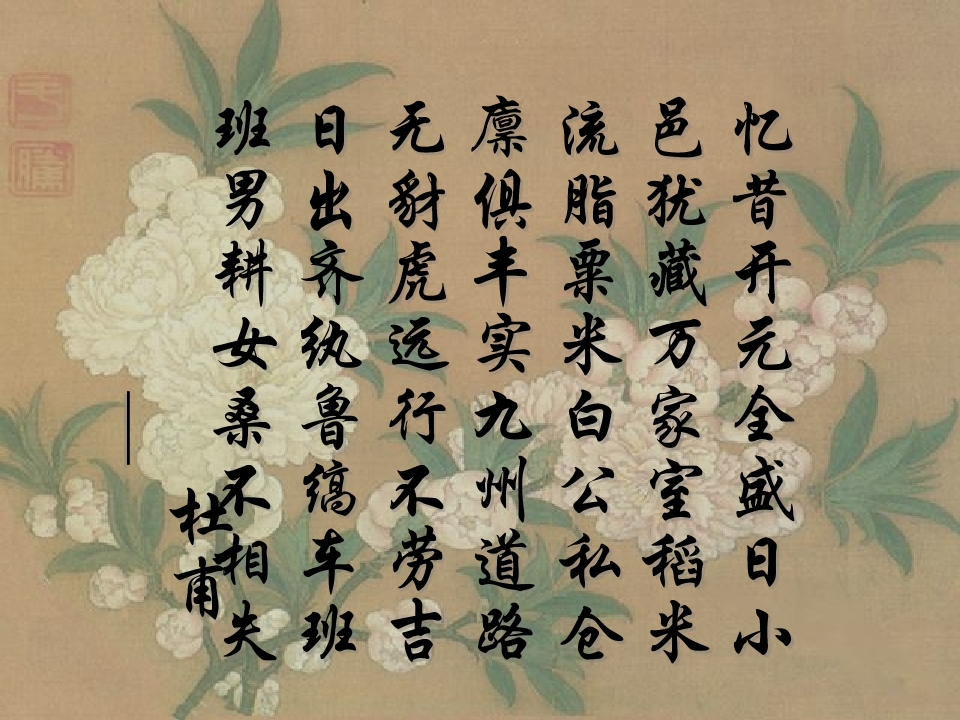 忆昔开元全盛日小
邑犹藏万家室稻米
流脂粟米白公私仓
廪俱丰实九州道路
无豺虎远行不劳吉
日出齐纨鲁缟车班
班男耕女桑不相失
—杜甫